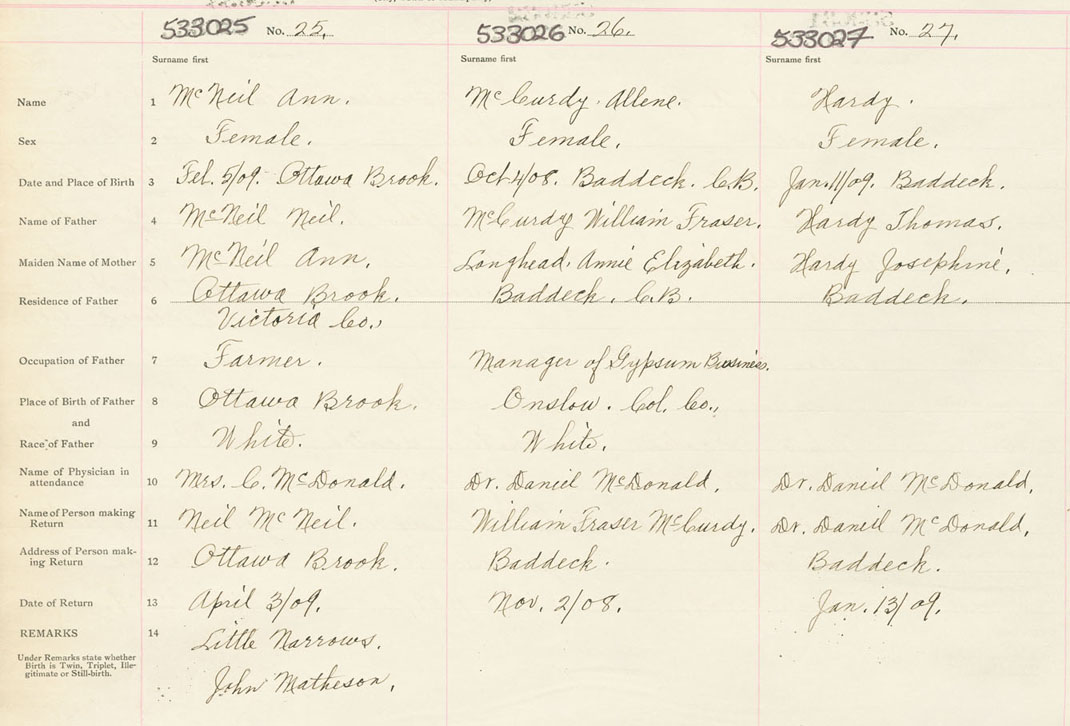 533025 No. 25. 533026 No. 26. 533027 No. 27.
Surname first Surname first Surname first
Name 1 McNeil Ann. McCurdy. Allene. Hardy.
Sex 2 Female. Female. Female.
Date and Place of Birth 3 Feb. 5/09. Ottawa Brook. Oct 4/08. Baddeck. C.B. Jan. 11/09. Baddeck.
Name of Father 4 McNeil Neil. McCurdy William Fraser. Hardy Thomas.
Maiden Name of Mother 5 McNeil Ann. Longhead. Annie Elizabeth. Hardy Josephine.
Residence of Father 6 Ottawa Brook. Baddeck. C.B. Baddeck.
Victoria Co.,
Occupation of Father 7 Farmer. Manager of Gypsum Business.
Place of Birth of Father 8 Ottawa Brook. Onslow. Col. Co.,
and
Race of Father 9 White. White.
Name of Physician in
attendance 10 Mrs. C. McDonald. Dr. Daniel McDonald. Dr. Daniel McDonald.
Name of Person making
Return 11 Neil McNeil. William Fraser McCurdy. Dr. Daniel McDonald.
Address of Person mak-
ing Return 12 Ottawa Brook. Baddeck. Baddeck.
Date of Return 13 April 3/09. Nov. 2/08. Jan. 13/09.
REMARKS 14 Little Narrows.
Under Remarks state whether
Birth is Twin, Triplet, Ille-
gitimate or Still-birth.
John Matheson,